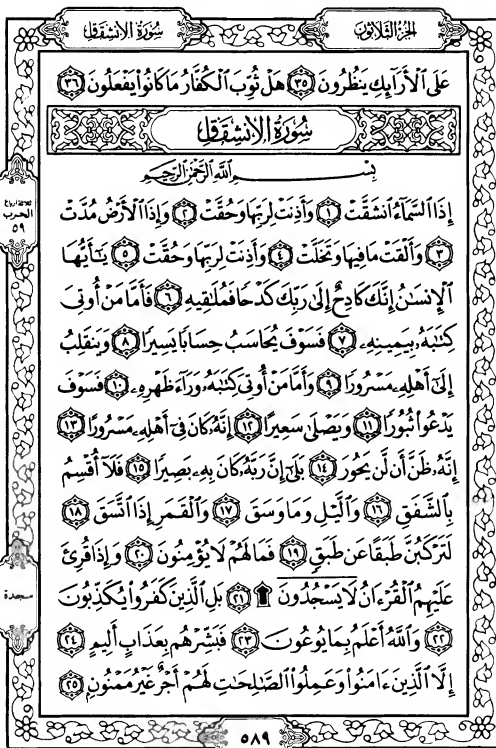 سُورَةُ الانشِقَاقِ
الجُزْءُ الثَّلَاثُونَ
عَلَى ٱلْأَرَآئِكِ يَنظُرُونَ ٣٥ هَلْ ثُوِّبَ ٱلْكُفَّارُ مَا كَانُوا۟ يَفْعَلُونَ ٣٦
سُورَةُ الانشِقَاقِ
بِسْمِ ٱللَّهِ ٱلرَّحْمَٰنِ ٱلرَّحِيمِ
إِذَا ٱلسَّمَآءُ ٱنشَقَّتْ ١ وَأَذِنَتْ لِرَبِّهَا وَحُقَّتْ ٢ وَإِذَا ٱلْأَرْضُ مُدَّتْ
٣ وَأَلْقَتْ مَا فِيهَا وَتَخَلَّتْ ٤ وَأَذِنَتْ لِرَبِّهَا وَحُقَّتْ ٥ يَٰٓأَيُّهَا
ٱلْإِنسَٰنُ إِنَّكَ كَادِحٌ إِلَىٰ رَبِّكَ كَدْحًا فَمُلَٰقِيهِ ٦ فَأَمَّا مَنْ أُوتِىَ
كِتَٰبَهُۥ بِيَمِينِهِۦ ٧ فَسَوْفَ يُحَاسَبُ حِسَابًا يَسِيرًا ٨ وَيَنقَلِبُ
إِلَىٰٓ أَهْلِهِۦ مَسْرُورًا ٩ وَأَمَّا مَنْ أُوتِىَ كِتَٰبَهُۥ وَرَآءَ ظَهْرِهِۦ ١٠ فَسَوْفَ
يَدْعُوا۟ ثُبُورًا ١١ وَيَصْلَىٰ سَعِيرًا ١٢ إِنَّهُۥ كَانَ فِىٓ أَهْلِهِۦ مَسْرُورًا ١٣
إِنَّهُۥ ظَنَّ أَن لَّن يَحُورَ ١٤ بَلَىٰٓ إِنَّ رَبَّهُۥ كَانَ بِهِۦ بَصِيرًا ١٥ فَلَآ أُقْسِمُ
بِٱلشَّفَقِ ١٦ وَٱلَّيْلِ وَمَا وَسَقَ ١٧ وَٱلْقَمَرِ إِذَا ٱتَّسَقَ ١٨
لَتَرْكَبُنَّ طَبَقًا عَن طَبَقٍ ١٩ فَمَا لَهُمْ لَا يُؤْمِنُونَ ٢٠ وَإِذَا قُرِئَ
عَلَيْهِمُ ٱلْقُرْءَانُ لَا يَسْجُدُونَ ۩ ٢١ بَلِ ٱلَّذِينَ كَفَرُوا۟ يُكَذِّبُونَ
٢٢ وَٱللَّهُ أَعْلَمُ بِمَا يُوعُونَ ٢٣ فَبَشِّرْهُم بِعَذَابٍ أَلِيمٍ ٢٤
إِلَّا ٱلَّذِينَ ءَامَنُوا۟ وَعَمِلُوا۟ ٱلصَّٰلِحَٰتِ لَهُمْ أَجْرٌ غَيْرُ مَمْنُونٍۭ ٢٥
ثلاثة أرباع
الحزب
٥٩
سجدة
٥٨٩